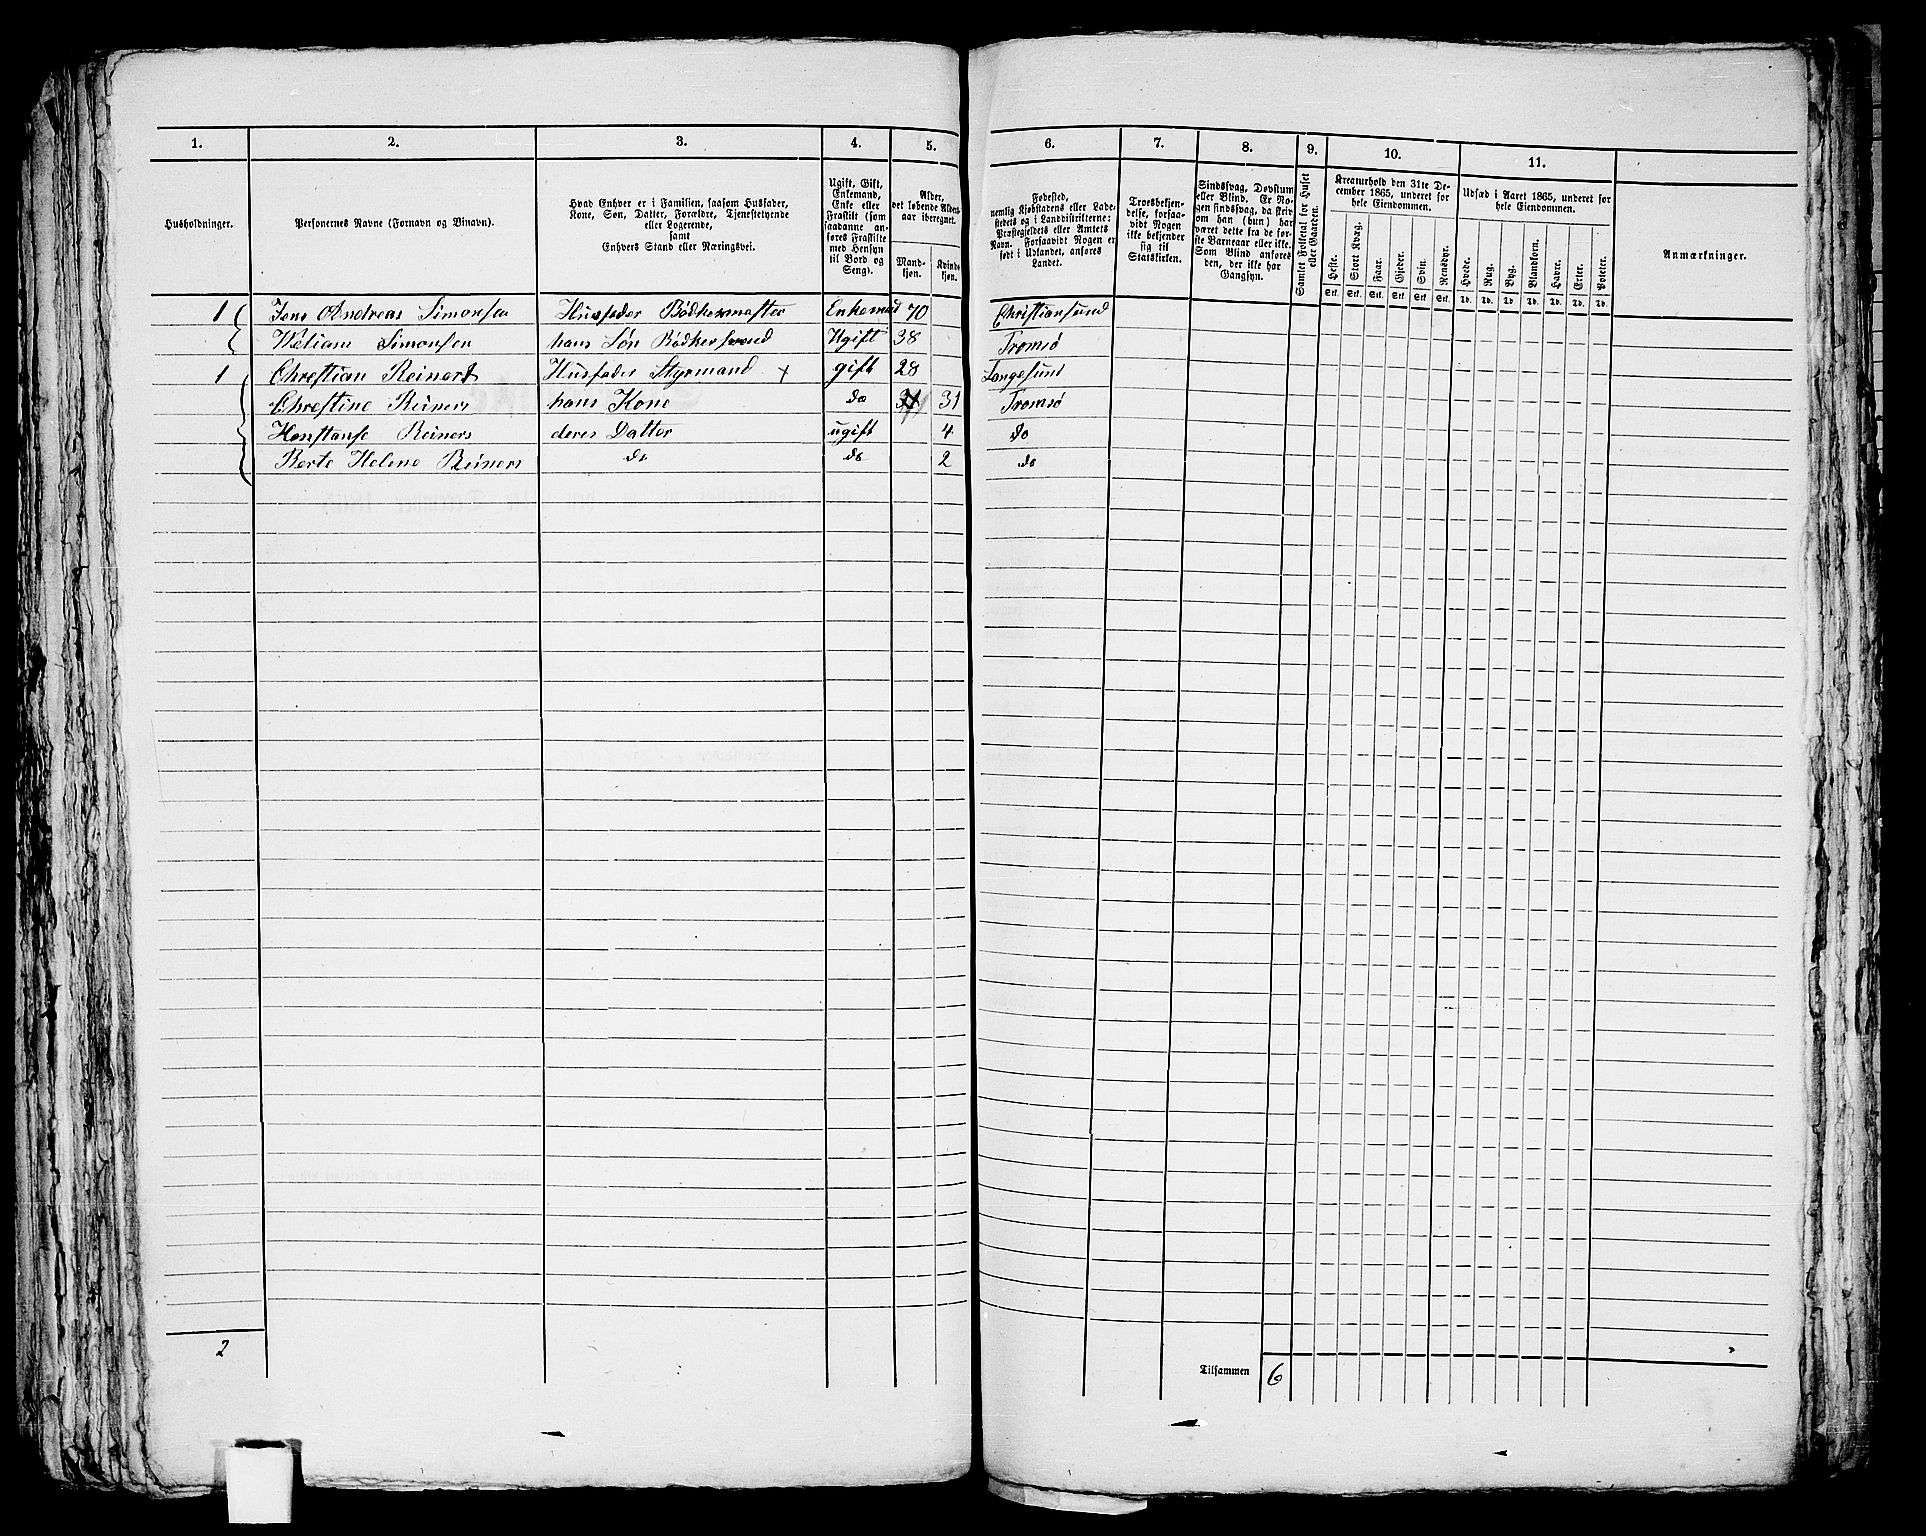 1. 2. 3. 4. 5. 6. 7. 8. 9. 10. 11.
Husholdninger.
Personernes Navne (Fornavn og Binavn).
Hvad Enhver er i Familien, saasom Husfader,
Kone, Søn, Datter, Forældre, Tjenestetyende
eller Logerende,
samt
Enhvers Stand eller Næringsvei.
Ugift, Gift,
Enkemand,
Enke eller
Fraskilt (som
saadanne an-
føres Fraskilte
med Hensyn
til Bord og
Seng).
Alder,
det løbende Alders-
aar iberegnet.
Mand-
kjøn.
Kvinde-
kjøn.
Fødested,
nemlig Kjøbstadens eller Lade-
stedets og i Landdistrikterne:
Præstegjeldets eller Amtets
Navn. Forsaavidt Nogen er
født i Udlandet, anføres
Landet.
Troesbekjen-
delse, forsaa-
vidt Nogen
ikke bekjender
sig til
Statskirken.
Sindssvag, Døvstum
eller Blind. Er No-
gen sindssvag, da skriv
om han (hun) har
været dette fra de før-
ste Barneaar eller ikke.
Som Blind anføres
den, der ikke har
Gangsyn.
Samlet Folketal for Huset
eller Gaarden.
Kreaturhold den 31te De-
cember 1865, underet for
hele Eiendommen.
Heste. Stort Kvæg. Faar. Gjeder. Svin. Rensdyr.
Stk. Stk. Stk. Stk. Stk. Stk.
Udsæd i Aaret 1865, underet for
hele Eiendommen.
Hvede. Rug. Byg. Blandkorn. Havre. Erter. Poteter.
Td. Td. Td. Td. Td. Td. Td.
Anmærkninger.
1 Jens Andreas Simonsen Husfader Bødkermester Enkemd 70 Christiansund
Simonsen hans Søn Bødkersvend Ugift 38 Tromsø
1 Christian Reinert Husfader Styrmand x gift 28 Langesund
Christine Reiners hans Kone do 31 Tromsø
Reiners deres Datter ugift 4 do
Berte Helene Reiners do do 2 do
2
Tilsammen 6